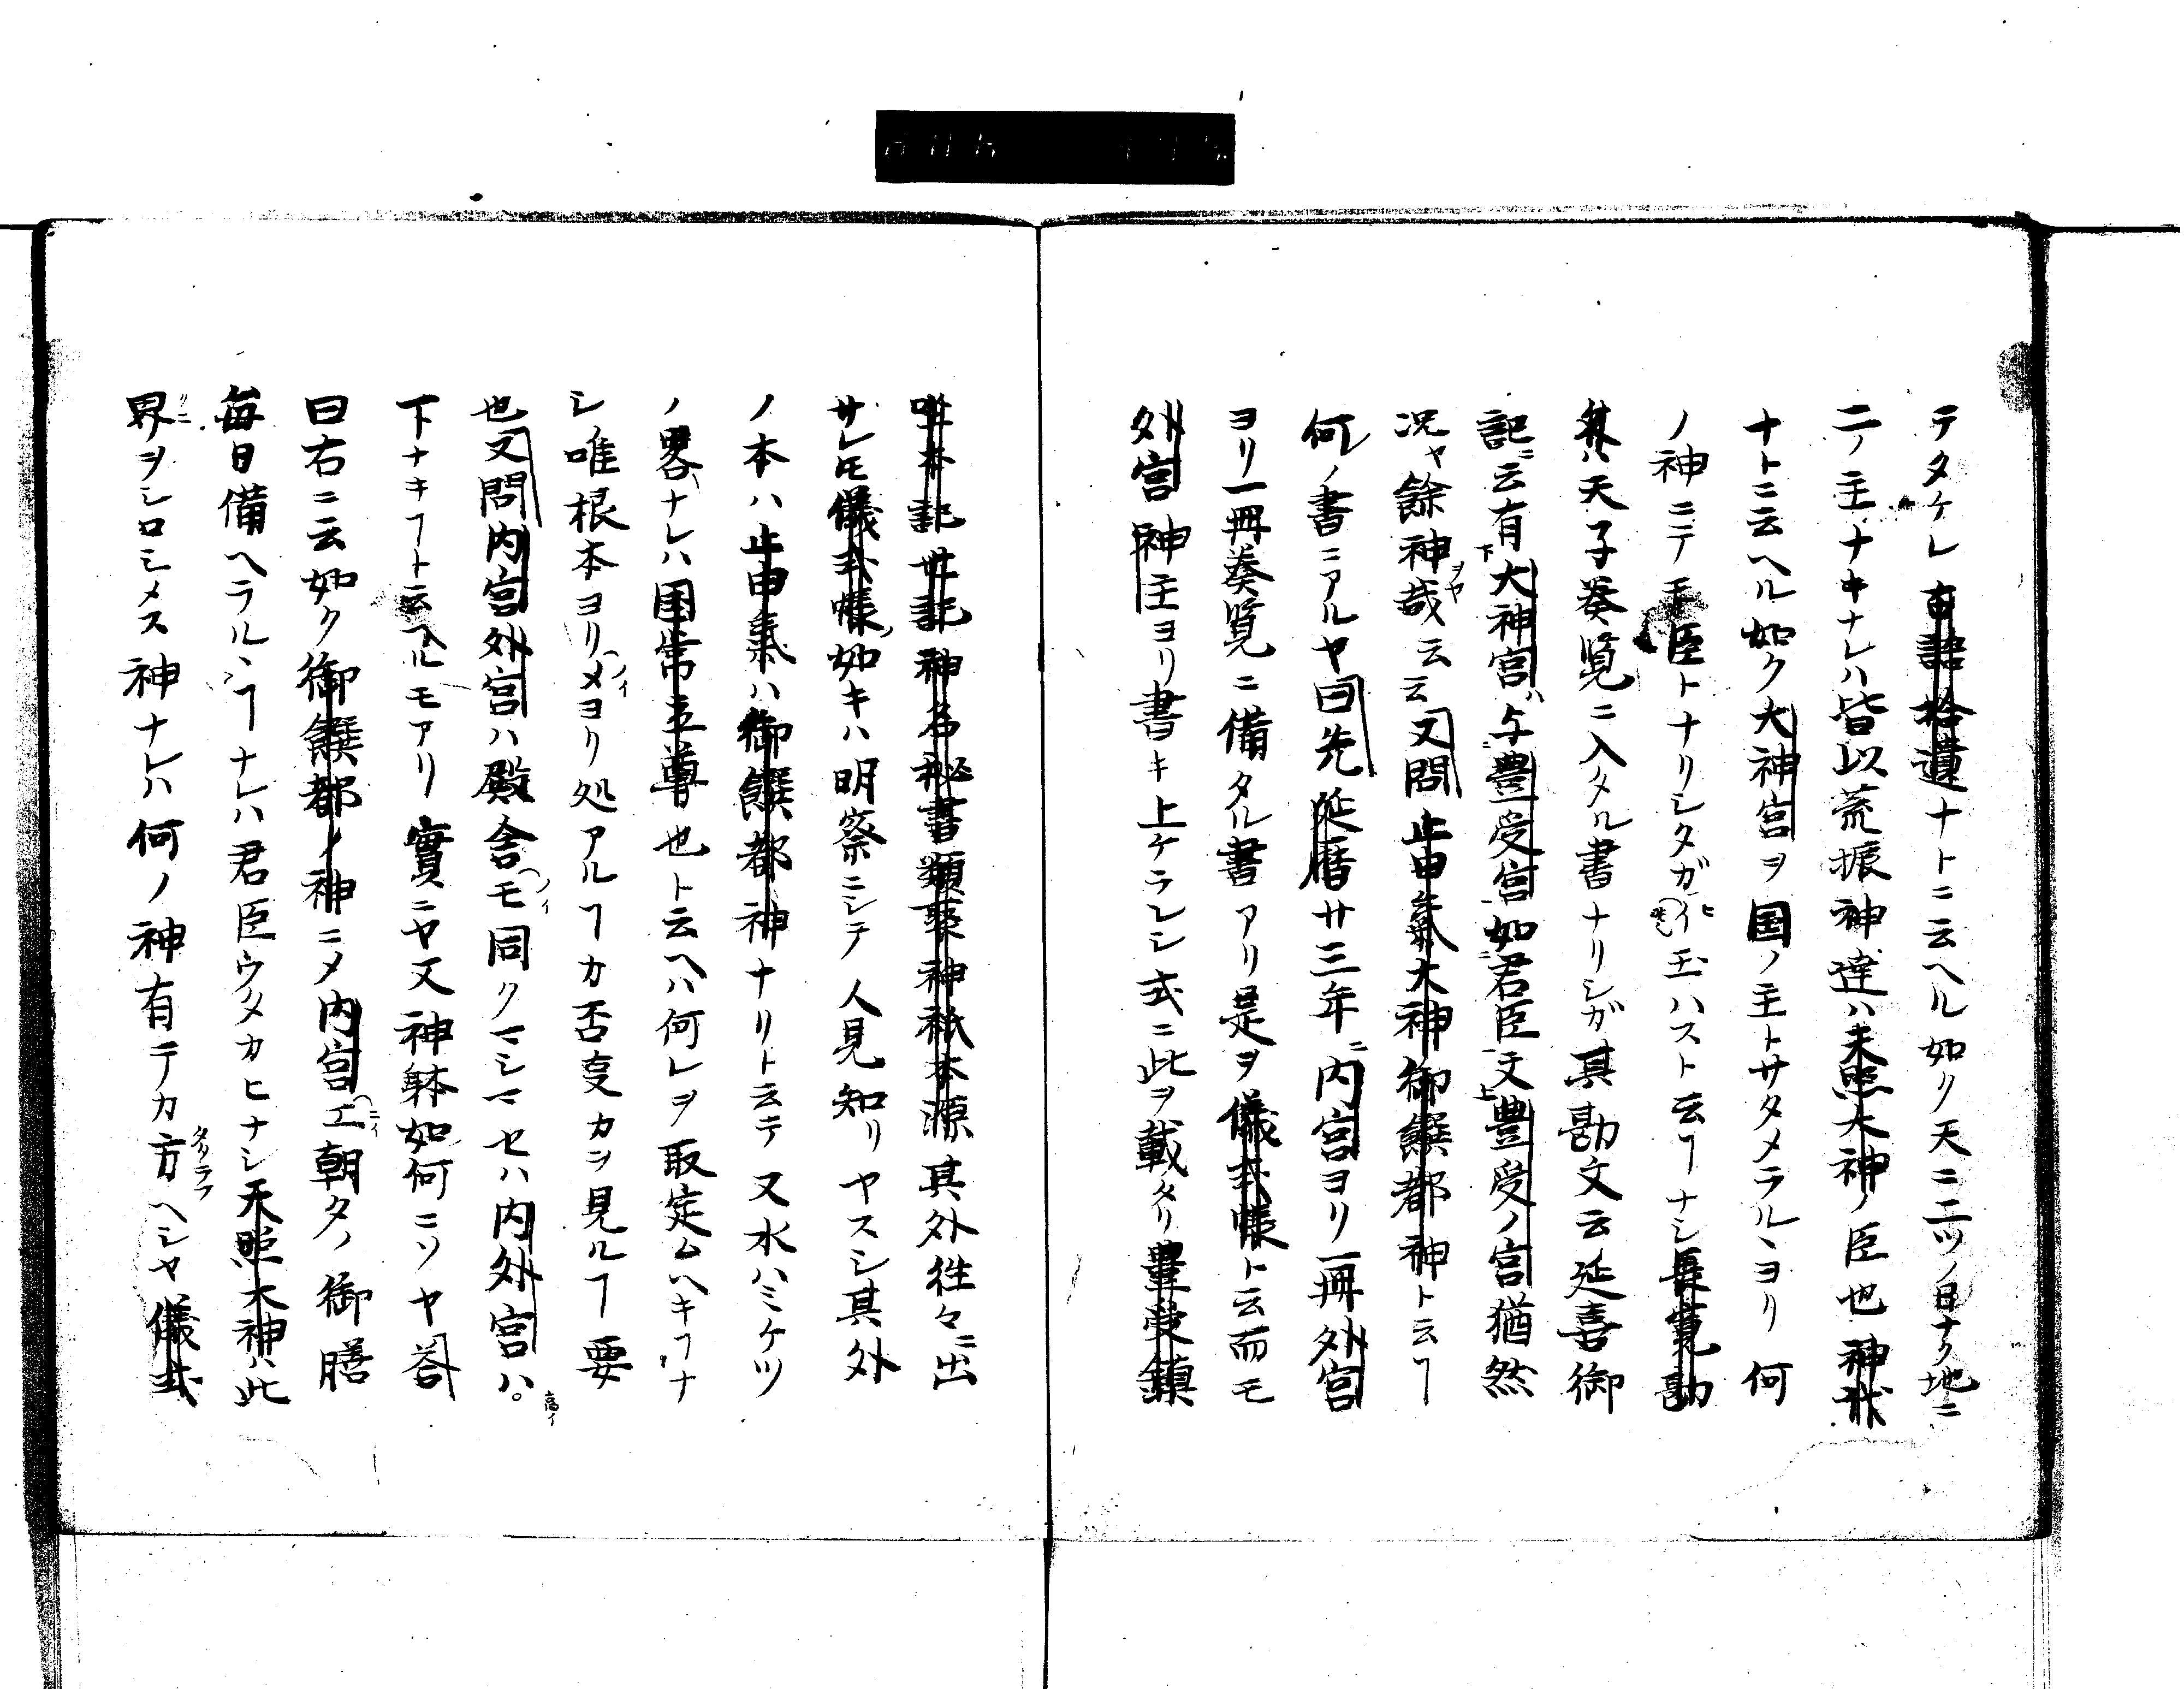 テタケレ古語拾遺ナトニ云ヘル如ク天ニ二ツノ日ナク地ニ
二ノ主ナキナレハ皆以荒振神達ハ天照大神ノ臣也神祇
ナトニ云ヘル如ク大神宮ヲ国ノ主トサタメラルヽヨリ何
ノ神ニテモ臣トナリシタガイ玉ハスト云ヿナシ長寛勘
文ハ天子奏覧ニ入タル書ナリシガ其勘文云延喜御
記ニ云有大神宮ハ与豊受宮如君臣文豊受ノ宮猶然
况ヤ餘神哉云云又問止由氣大神御饌都神ト云ヿ
何ノ書ニアルヤ曰先延暦廿三年ニ内宮ヨリ一冊外宮
ヨリ一冊奏覧ニ備タル書アリ是ヲ儀式帳ト云而モ
外宮神主ヨリ書キ上ケラレシ式ニ此ヲ載タリ豊受鎮
座本記世記神名秘書類聚神祇本源其外往々ニ出
サレモ儀式帳ノ如キハ明察ニシテ人見知リヤスシ其外
ノ本ハ止由氣ハ御饌都神ナリト云テ又水ハミケツ
ノ畧ナレハ国常立尊也ト云ヘハ何レヲ取定ムヘキヿナ
シ唯根本ヨリメヨリ処アルヿカ否変カヲ見ルヿ要
也又問内宮外宮ハ殿舎モ同クマシマセハ内外宮ハ高
下ナキヿト云ヘルモアリ實ニヤ又神躰如何ニソヤ答
曰右ニ云如ク御饌都ノ神ニメ内宮エ朝夕ノ御膳
毎日備ヘラルヽヿナレハ君臣ウタカヒナシ天照大神ハ此
界ヲシロシメス神ナレハ何ノ神有テカ方ヘシヤ儀式